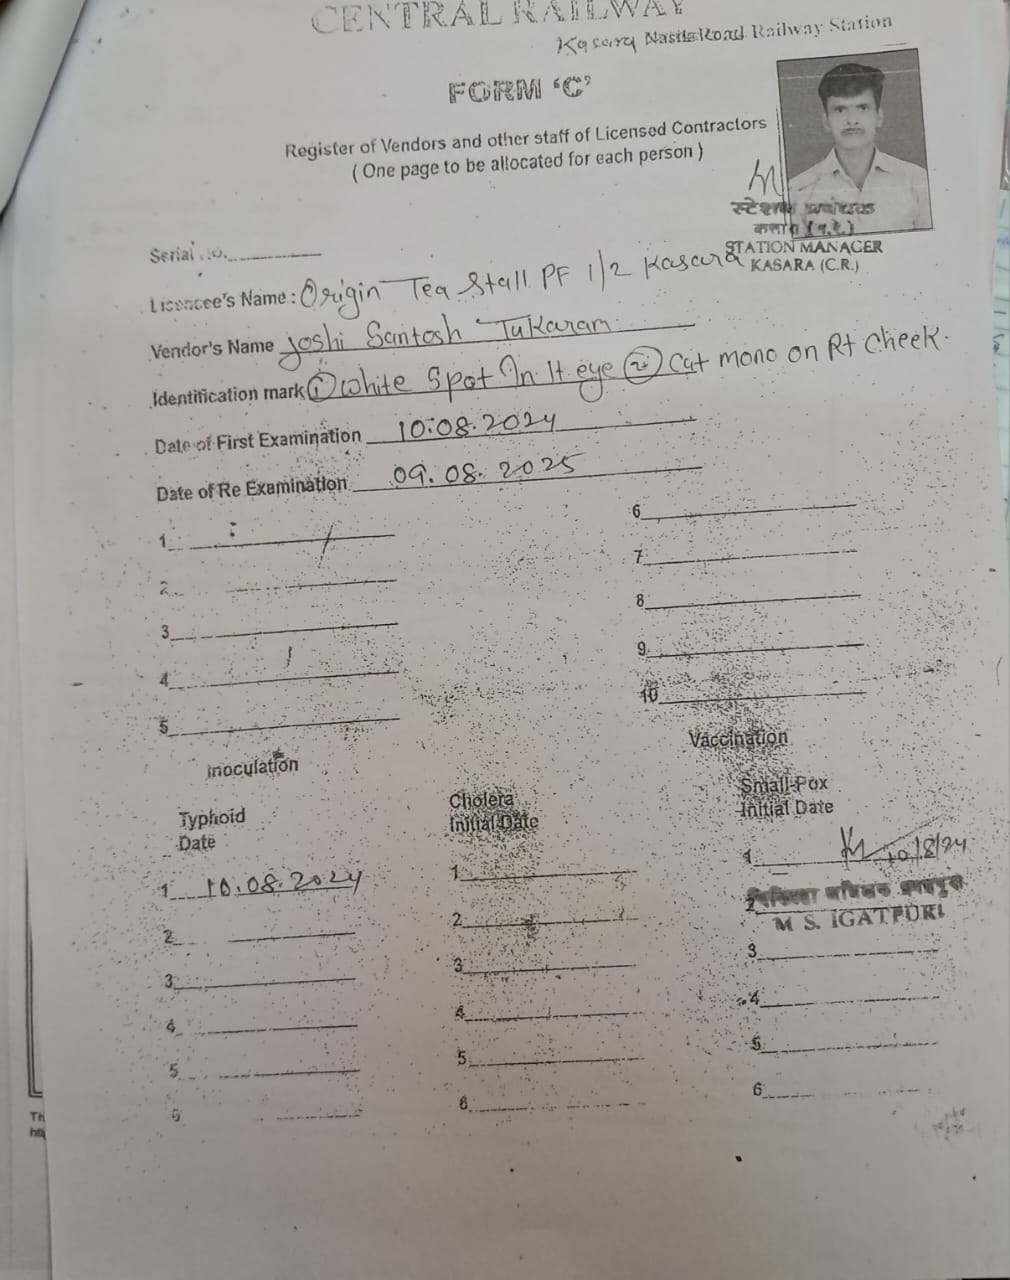 CENTRAL RAILWAY
Kasara Nasik Road Railway Station
FORM 'C'
Register of Vendors and other staff of Licensed Contractors
( One page to be allocated for each person )
स्टेशन प्रबंधक
कसारा (म.रे.)
STATION MANAGER
KASARA (C.R.)
Serial no.
Licencee's Name : Origin Tea Stall PF 1/2 Kasara
Vendor's Name Joshi Santosh Tukaram
Identification mark ① White Spot In lt eye ② Cut mono on Rt Cheek.
Date of First Examination 10.08.2024
Date of Re Examination 09.08.2025
1
6
2
7
3
8
4
9
5
10
Inoculation
Vaccination
Typhoid
Date
Cholera
Initial Date
Small-Pox
Initial Date
1 10.08.2024
1
1 10/8/24
2
2
2
M S. IGATPURI
3
3
3
4
4
4
5
5
5
6
6
6